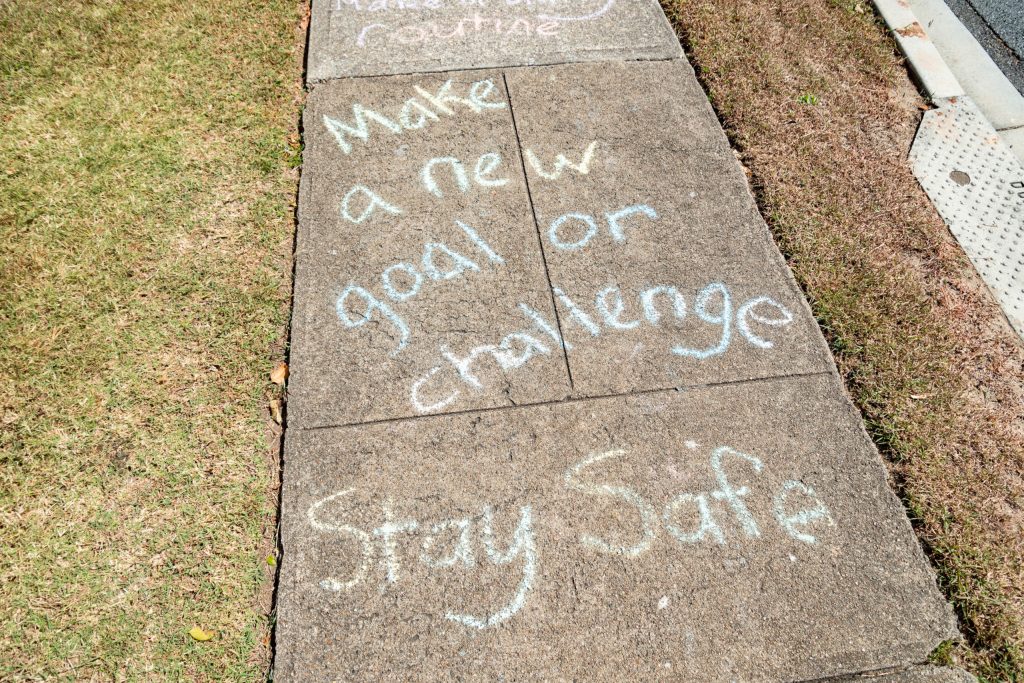 Make a
routine
Make
a new
goal or
challenge
Stay Safe